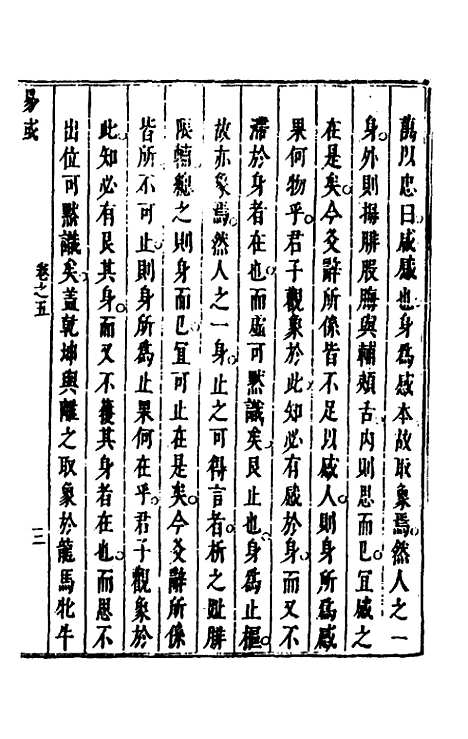 萬以忠曰咸感也身為感本故取象焉然人之一
身外則拇腓股脢與輔頰舌内則思而已宜感之
在是矣今爻辭所係皆不足以感人則身所為感
果何物乎君子觀象於此知必有感於身而又不
滯於身者在也而虛可默識矣艮止也身為止樞
故亦象焉然人之一身止之可得言者析之趾腓
限輔總之則身而已宜可止在是矣今爻辭所係
皆所不可止則身所為止果何在乎君子觀象於
此知必有艮其身而又不獲其身者在也而思不
出位可默識矣蓋乾坤與離之取象於龍馬牝牛
易或
卷之五
三